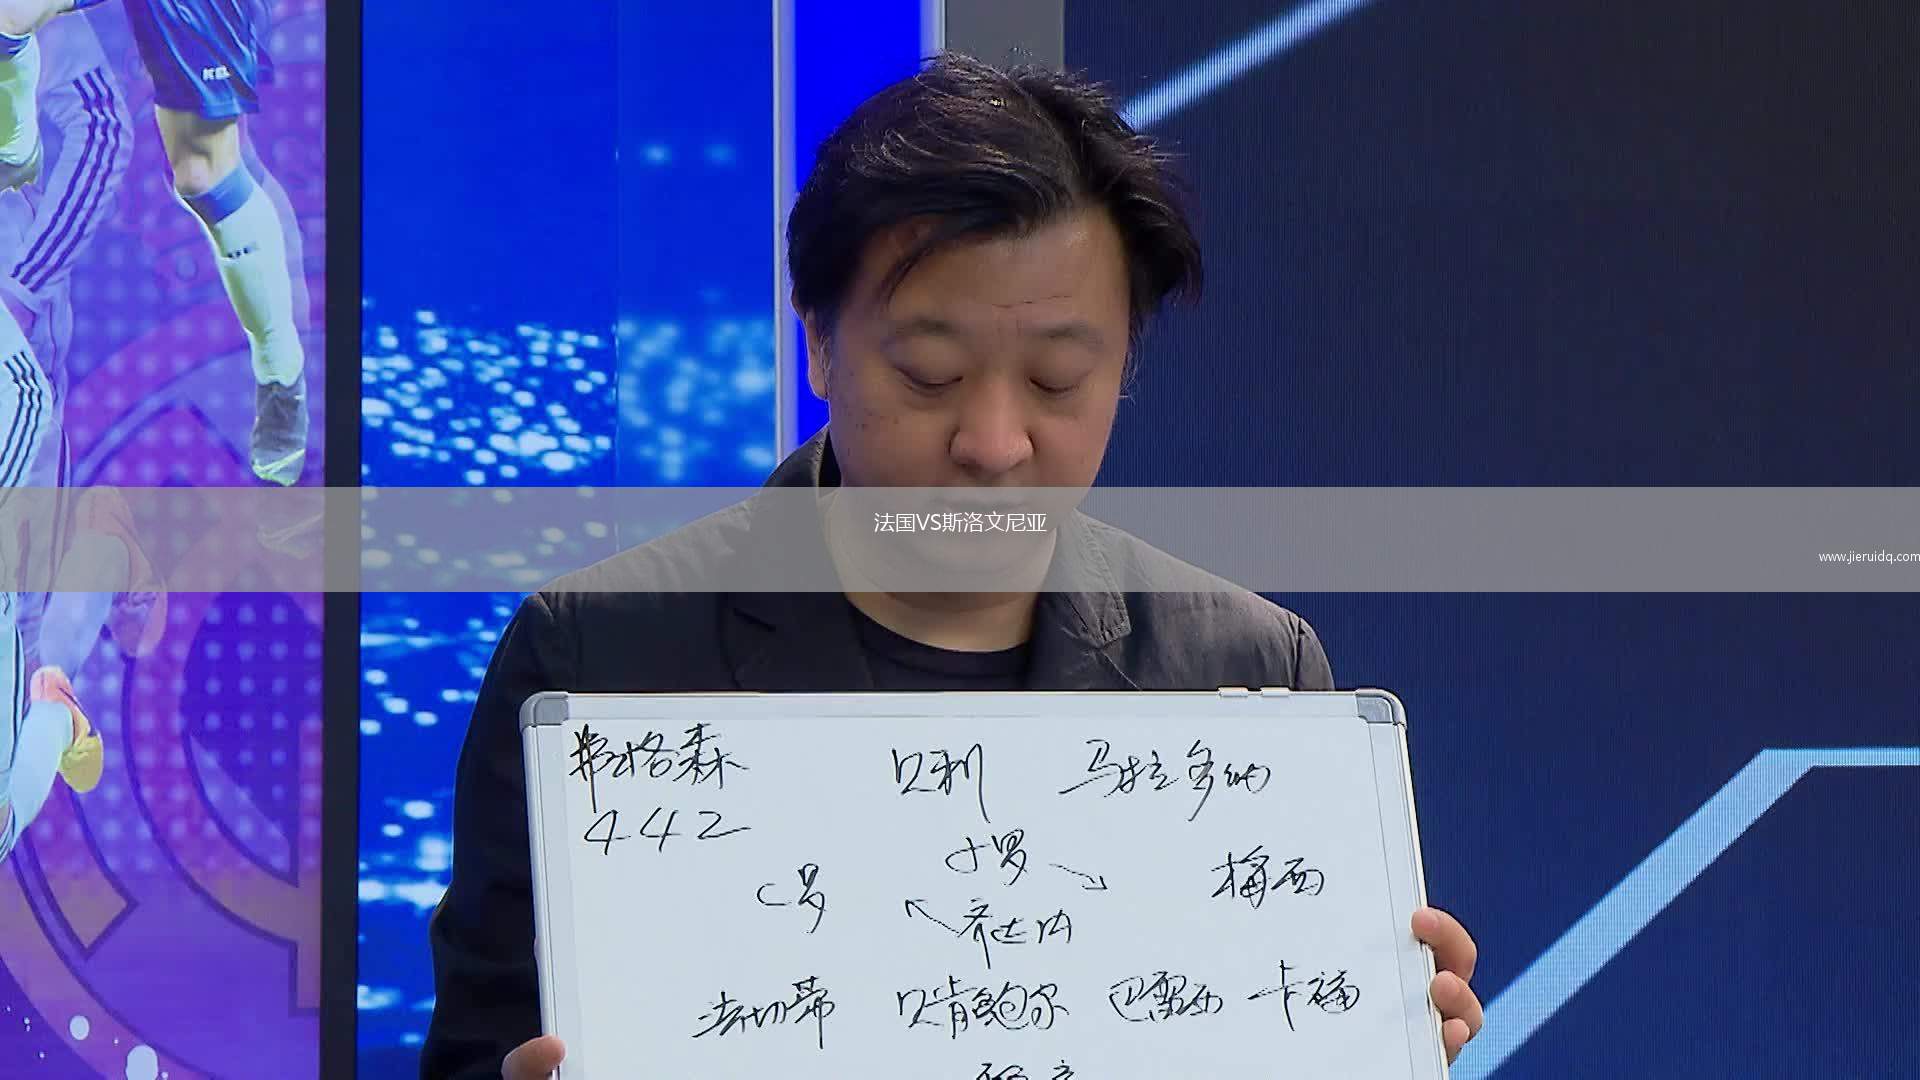 法国VS斯洛文尼亚
www.jieruidq.com
弗格森 贝利 马拉多纳
442
小罗
C罗 梅西
齐达内
法切蒂 贝肯鲍尔 巴雷西 卡福